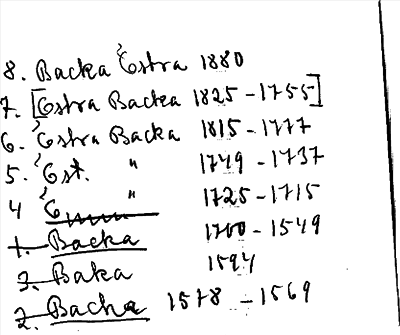 8. Backa Östra 1880
7. [Östra Backa 1825-1755]
6. Östra Backa 1815-1777
5. Öst. " 1749-1737
4 Ö " 1725-1715
1. Backa 1700-1549
3. Baka 1594
2. Backa 1578-1569